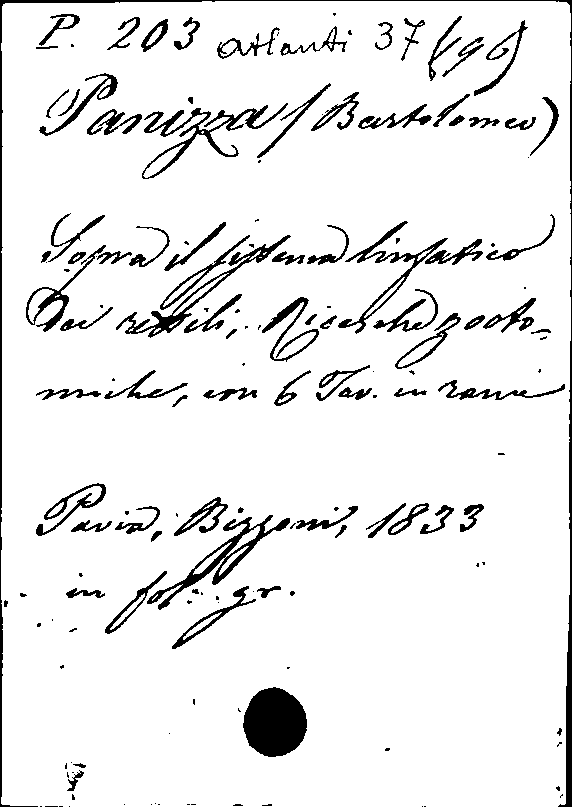 P. 203 Atlanti 37 (96)
Panizza (Bartolomeo)
Sopra il sistema linfatico
Dei rettili, Ricerche zooto-
miche, con 6 Tav. in rame
Pavia, Bizzoni, 1833
in fol. gr.